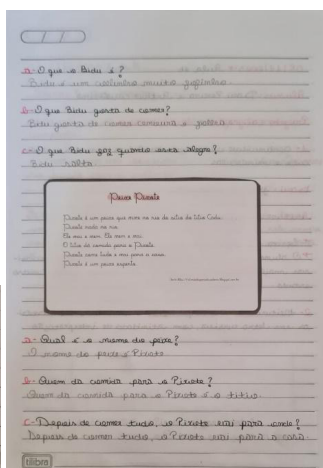 a- O que o Bidu é?
Bidu é um cachorrinho muito fofinho.
b- O que Bidu gosta de comer?
Bidu gosta de comer cenoura e
c- O que Bidu faz quando está alegre?
Bidu salta.
Peixe Pixote
Pixote é um peixe que vive no rio do sítio do titio Cadu.
Pixote nada no rio.
Ele vai e vem. Ele vem e vai.
O titio dá comida para o Pixote.
Pixote come tudo e vai para a casa.
Pixote é um peixe esperto.
a- Qual é o nome do peixe?
O nome do peixe é Pixote.
b- Quem dá comida para o Pixote?
Quem dá comida para o Pixote é o titio.
c- Depois de comer tudo, o Pixote vai para onde?
Depois de comer tudo, o Pixote vai para a casa.
tilibra